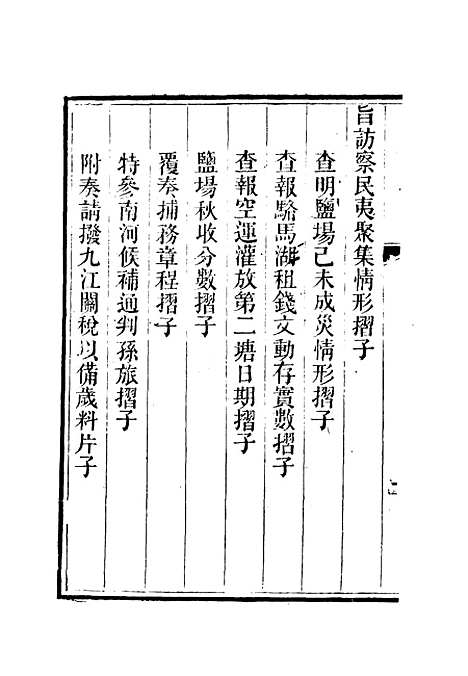 旨訪察民夷聚集情形摺子
查明鹽場己未成災情形摺子
查報駱馬湖租錢文動存實數摺子
查報空運灌放第二塘日期摺子
鹽場秋收分數摺子
覆奏捕務章程摺子
特參南河候補通判孫旅摺子
附奏請撥九江關稅以備歲料片子